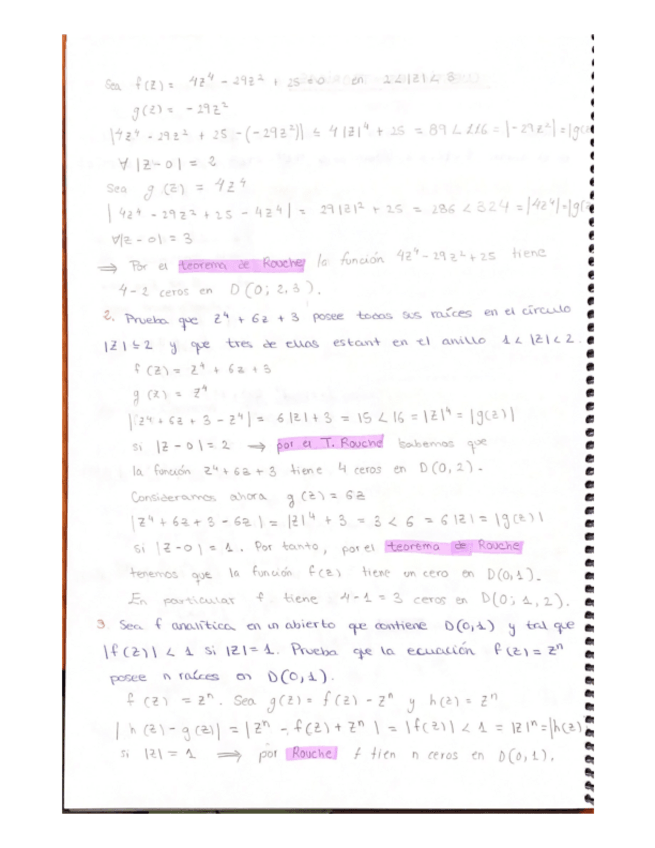 Sea f(z) = 4z⁴ - 29z² + 25 = 0 en 2<|z|<3
g(z) = -29z²
|4z⁴ - 29z² + 25 - (-29z²)| ≤ 4|z|⁴ + 25 = 89 < 116 = |-29z²| = |g(z
∀ |z-0| = 2
Sea g(z) = 4z⁴
|4z⁴ - 29z² + 25 - 4z⁴| = 29|z|² + 25 = 286 < 324 = |4z⁴| = |g(z
∀|z-0| = 3
⟹ Por el teorema de Rouche la función 4z⁴ - 29z² + 25 tiene
4-2 ceros en D(0; 2,3).
2. Prueba que z⁴ + 6z + 3 posee todas sus raíces en el círculo
|z| ≤ 2 y que tres de ellas estant en el anillo 1 < |z| < 2.
f(z) = z⁴ + 6z + 3
g(z) = z⁴
|z⁴ + 6z + 3 - z⁴| = 6|z| + 3 = 15 < 16 = |z|⁴ = |g(z)|
si |z-0| = 2 ⟹ por el T. Rouche sabemos que
la función z⁴ + 6z + 3 tiene 4 ceros en D(0,2).
Consideramos ahora g(z) = 6z
|z⁴ + 6z + 3 - 6z| = |z|⁴ + 3 = 3 < 6 = 6|z| = |g(z)|
si |z-0| = 1. Por tanto, por el teorema de Rouche
tenemos que la función f(z) tiene un cero en D(0,1).
En particular f tiene 4-1 = 3 ceros en D(0; 1,2).
3. Sea f analítica en un abierto que contiene D(0,1) y tal que
|f(z)| < 1 si |z| = 1. Prueba que la ecuación f(z) = zⁿ
posee n raíces en D(0,1).
f(z) = zⁿ. Sea g(z) = f(z) - zⁿ y h(z) = zⁿ
|h(z) - g(z)| = |zⁿ - f(z) + zⁿ| = |f(z)| < 1 = |z|ⁿ = |h(z)
si |z| = 1 ⟹ por Rouche f tien n ceros en D(0,1).